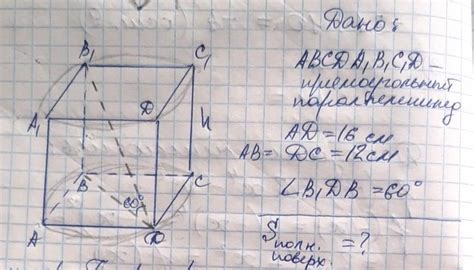 Дано:
ABCDA₁B₁C₁D -
прямоугольный
параллелепипед
AD = 16 см
AB = DC = 12 см
∠B₁DB = 60°
Sполн. = ?
поверх.
B₁
C₁
A₁
D
H
B
C
60°
A
D